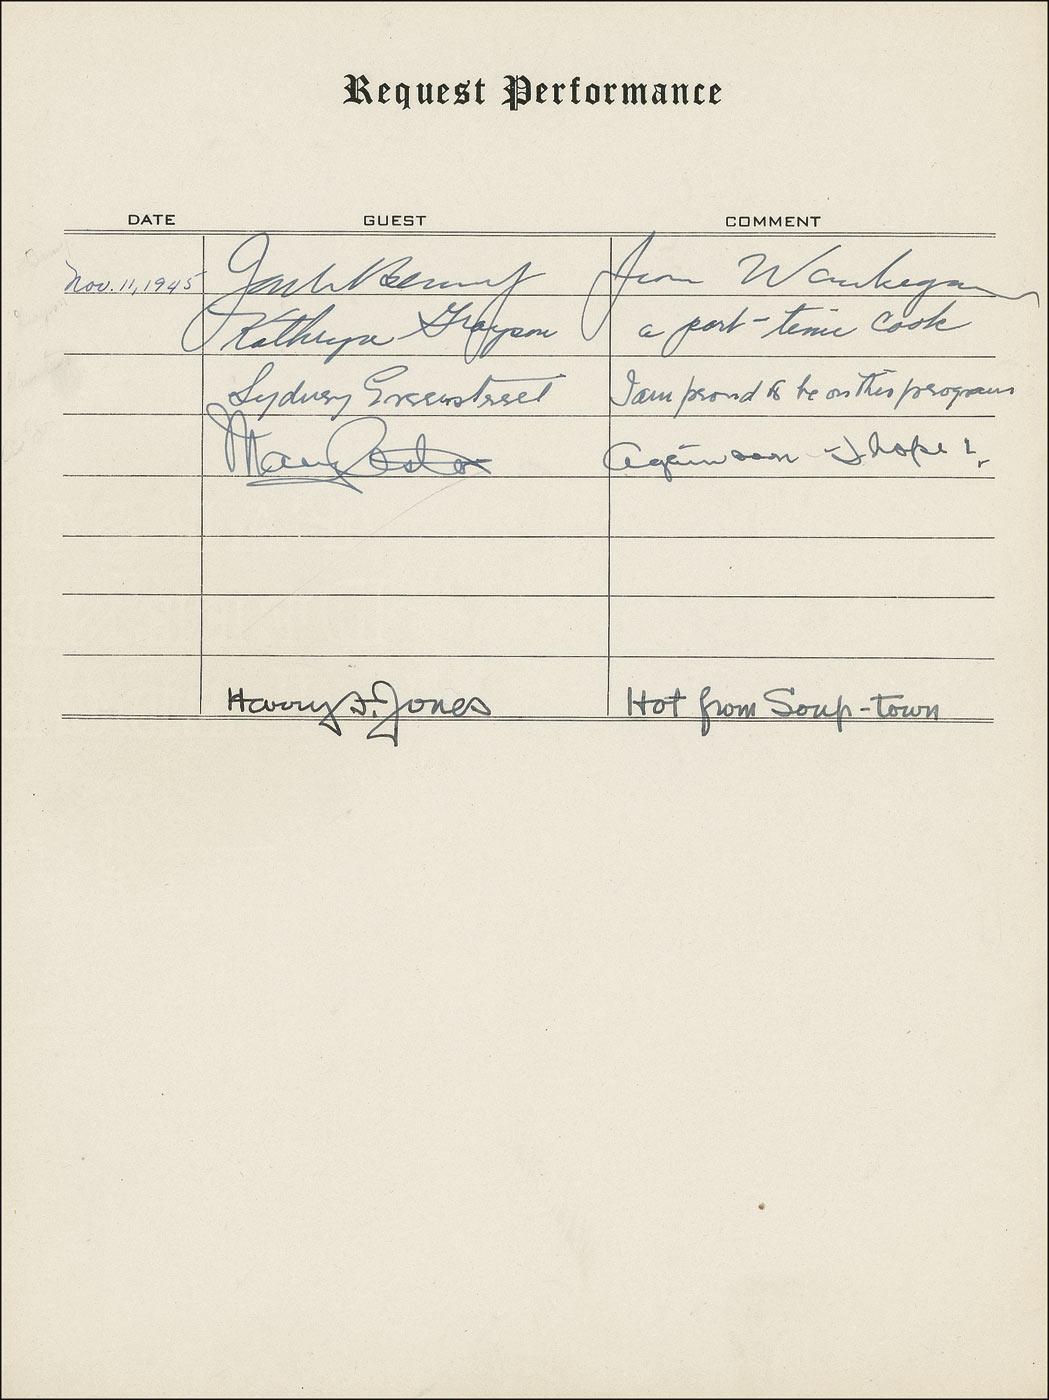 Request Performance
DATE GUEST COMMENT
Nov. 11, 1945 Jack Benny from Waukegan
Kathryn Grayson a part-time cook
Sydney Greenstreet I am proud to be on this program
Mary Astor Again soon - I hope!
Harry S. Jones Hot from Soup-town